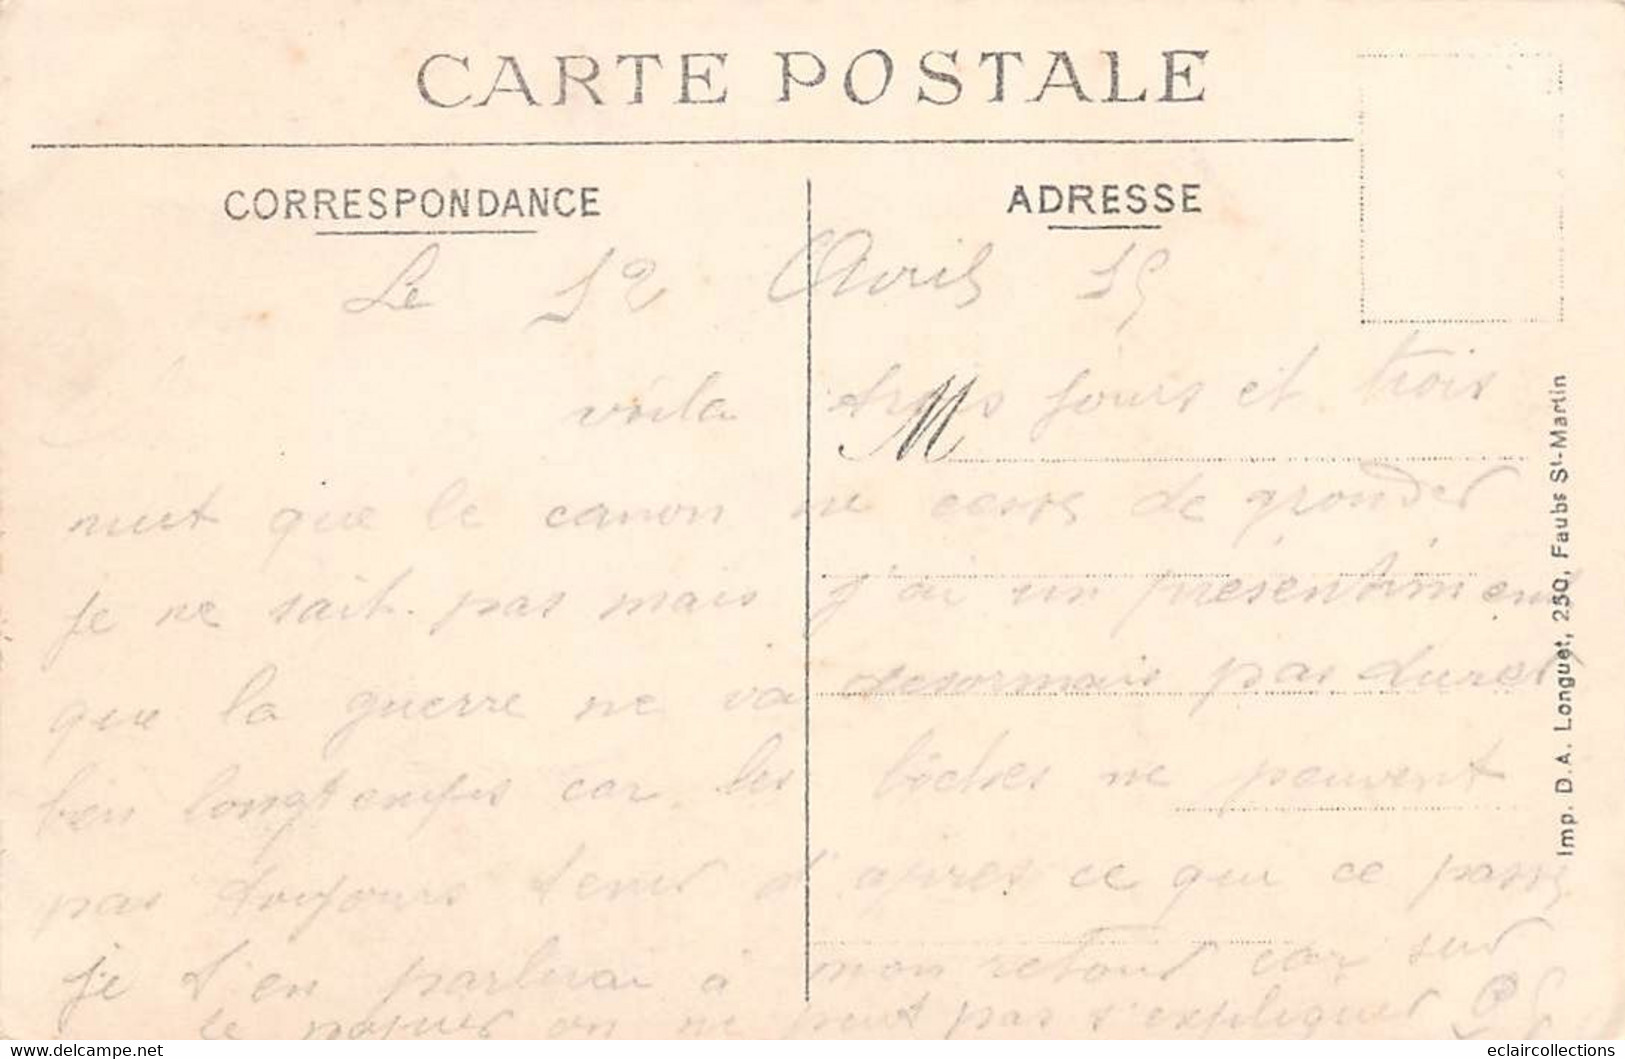 CARTE POSTALE
CORRESPONDANCE
ADRESSE
Le 12 Avril 15
voila trois jours et trois
M
nuit que le canon ne cesse de gronder
je ne sait pas mais j'ai un présentiment
que la guerre ne va desormais pas durer
bien longtemps car les boches ne peuvent
pas toujours tenir d'apres ce qui ce passe
je t'en parlerai à mon retour car sur
le papier on ne peut pas s'expliquer
Imp. D.A. Longuet, 250, Faubs St-Martin
eclaircollections